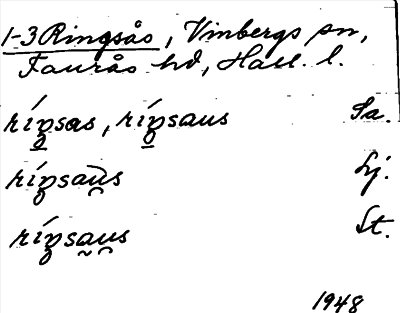 1-3 Ringsås, Vinbergs sn,
Faurås hd, Hall. l.
ríŋ̥sas, ríŋ̥saus Sa.
ríŋsau̯s Lj.
ríŋsa̰ṵs St.
1948